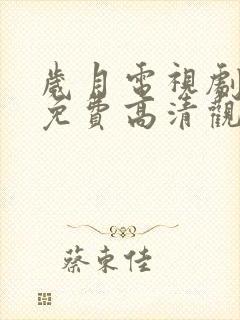 歲月電視劇
免費高清觀
蔡東佳